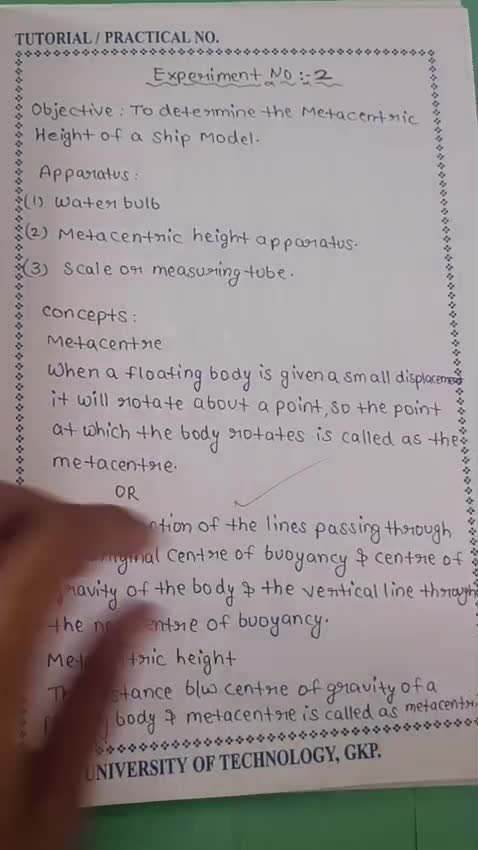 TUTORIAL / PRACTICAL NO.
Experiment No :- 2
Objective : To determine the Metacentric
Height of a Ship Model.
Apparatus :
(1) Water bulb
(2) Metacentric height apparatus.
(3) Scale or measuring tube.
Concepts :
Metacentre
When a floating body is given a small displacement
it will rotate about a point, so the point
at which the body rotates is called as the
metacentre.
OR
of the lines passing through
centre of buoyancy & centre of
gravity of the body & the vertical line through
the centre of buoyancy.
height
b/w centre of gravity of a
body & metacentre is called as metacentric
UNIVERSITY OF TECHNOLOGY, GKP.